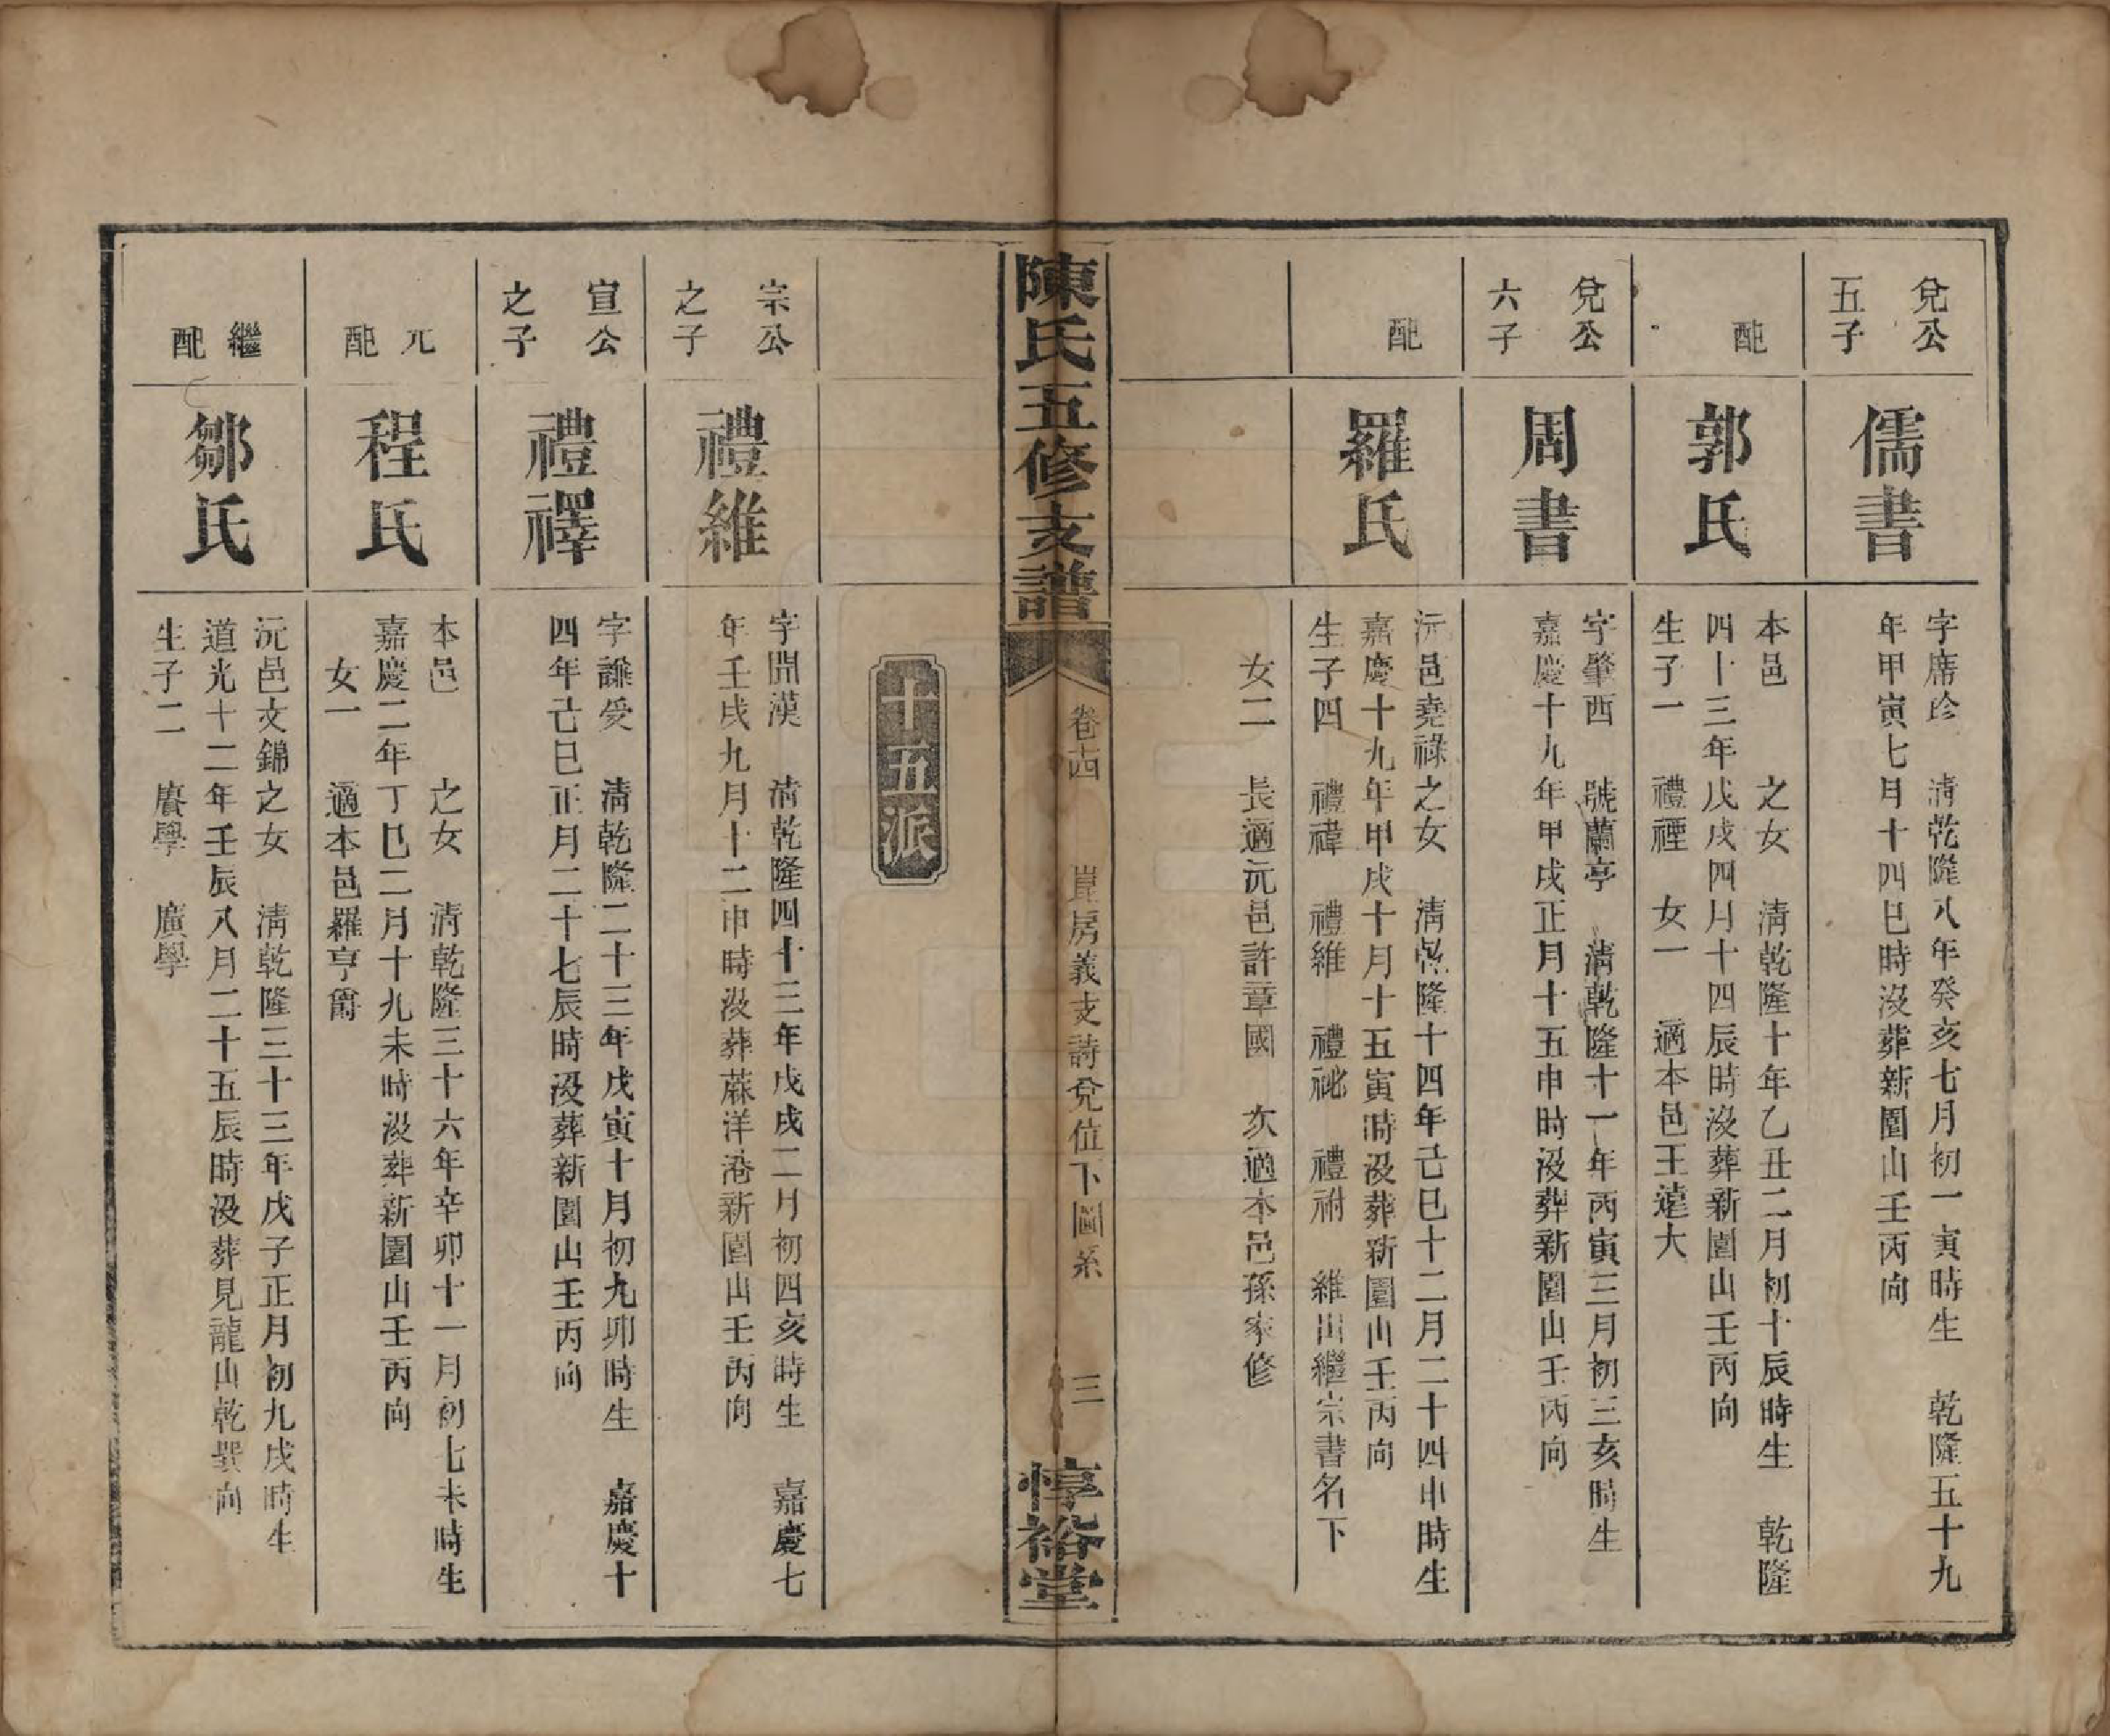 兌公
五子
儒書
字席珍　淸乾隆八年癸亥七月初一寅時生　乾隆五十九
年甲寅七月十四巳時沒葬新園山壬丙向
配
郭氏
本邑　　之女　淸乾隆十年乙丑二月初十辰時生　乾隆
四十三年戊戌四月十四辰時沒葬新園山壬丙向
生子一　禮禋　女一　適本邑王遠大
兌公
六子
周書
字肇西　號蘭亭　淸乾隆十一年丙寅三月初三亥時生
嘉慶十九年甲戌正月十五申時沒葬新園山壬丙向
配
羅氏
沅邑堯祿之女　淸乾隆十四年己巳十二月二十四申時生
嘉慶十九年甲戌十月十五寅時沒葬新園山壬丙向
生子四　禮禕　禮維　禮祕　禮祔　維出繼宗書名下
女二　長適沅邑許章國　次適本邑孫家修
陳氏五修支譜
卷十四　　房義支詩兌位下圖系　三
惇裕堂
十五派
宗公
之子
禮維
字開漢　淸乾隆四十三年戊戌二月初四亥時生　嘉慶七
年壬戌九月十二申時沒葬蔴洋港新園山壬丙向
宣公
之子
禮禪
字謙受　淸乾隆二十三年戊寅十月初九卯時生　嘉慶十
四年己巳正月二十七辰時沒葬新園山壬丙向
元
配
程氏
本邑　　之女　淸乾隆三十六年辛卯十一月初七未時生
嘉慶二年丁巳二月十九未時沒葬新園山壬丙向
女一　適本邑羅亨爵
繼
配
鄒氏
沅邑文錦之女　淸乾隆三十三年戊子正月初九戌時生
道光十二年壬辰八月二十五辰時沒葬見龍山乾巽向
生子二　賡學　廣學